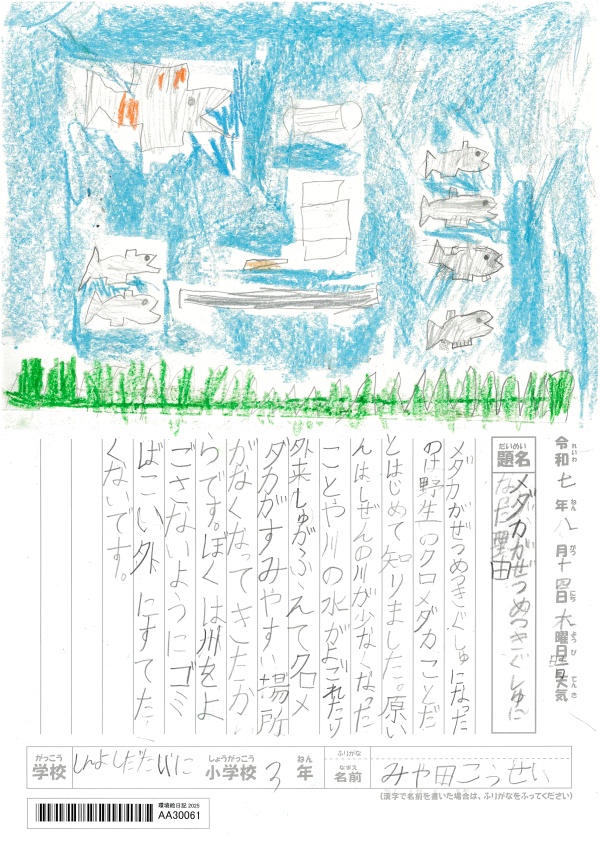 令和七年八月十四日木曜日 天気
題名 メダカがぜつめつきぐしゅに
なった理由
メダカがぜつめつきぐしゅになった
のは野生のクロメダカことだ
とはじめて知りました。原い
んはしぜんの川が少なくなった
ことや川の水がよごれたり
外来しゅがふえてクロメ
ダカがすみやすい場所
がなくなってきたか
らです。ぼくは川をよ
ごさないようにゴミ
ばこい外にすてた
くないです。
学校 小学校 3年
名前 みや田こうせい
(漢字で名前を書いた場合は、ふりがなをふってください)
環境絵日記 2025
AA30061